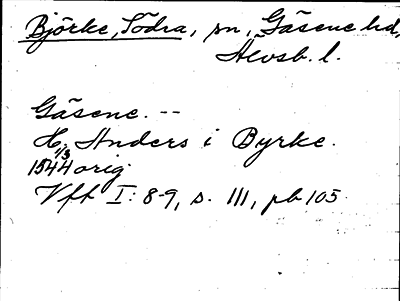 Björke, Södra, sn, Gäsene hd,
Älvsb. l.
Gäsene. --
H. Anders i Byrke.
1/3
1544 orig
Vft I: 8-9, s. 111, pb 105.